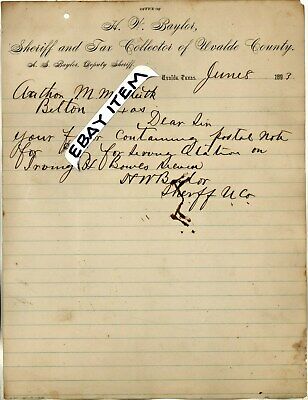 OFFICE OF
H. W. Baylor,
Sheriff and Tax Collector of Uvalde County.
A. S. Baylor, Deputy Sheriff.
Uvalde, Texas. June 8 1893
M. M.
Belton
Dear Sir
your containing postal Note
for for serving citation on
Irving H
H W Baylor
Sheriff U Co
EBAY ITEM